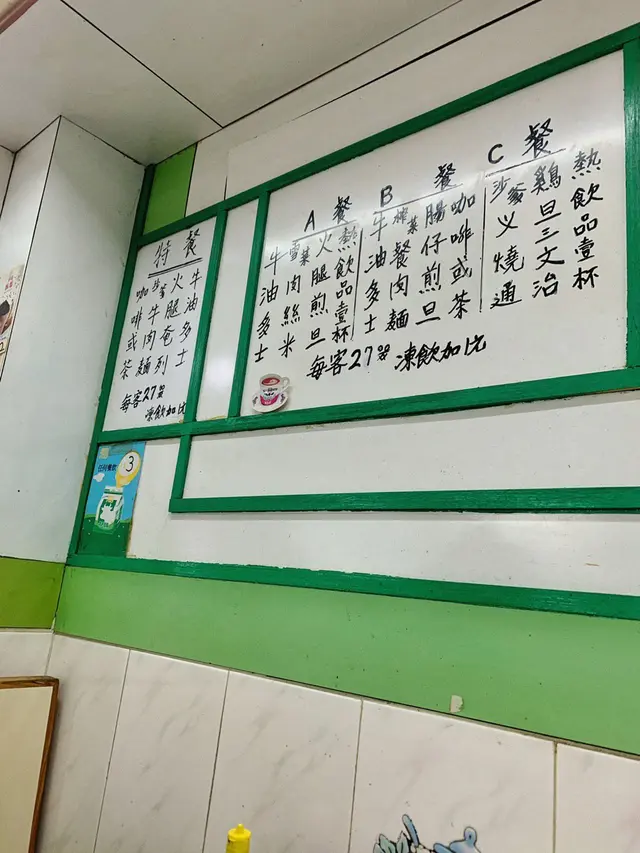 特餐
牛油多士
火腿奄列
沙爹牛肉麵
咖啡或茶
每客27
凍飲加比
A餐
熱飲品壹杯
火腿煎旦
雪菜肉絲米
牛油多士
B餐
咖啡或茶
腸仔煎旦
榨菜餐肉麵
牛油多士
C餐
熱飲品壹杯
鷄旦三文治
沙爹义燒通
每客27 凍飲加比
3